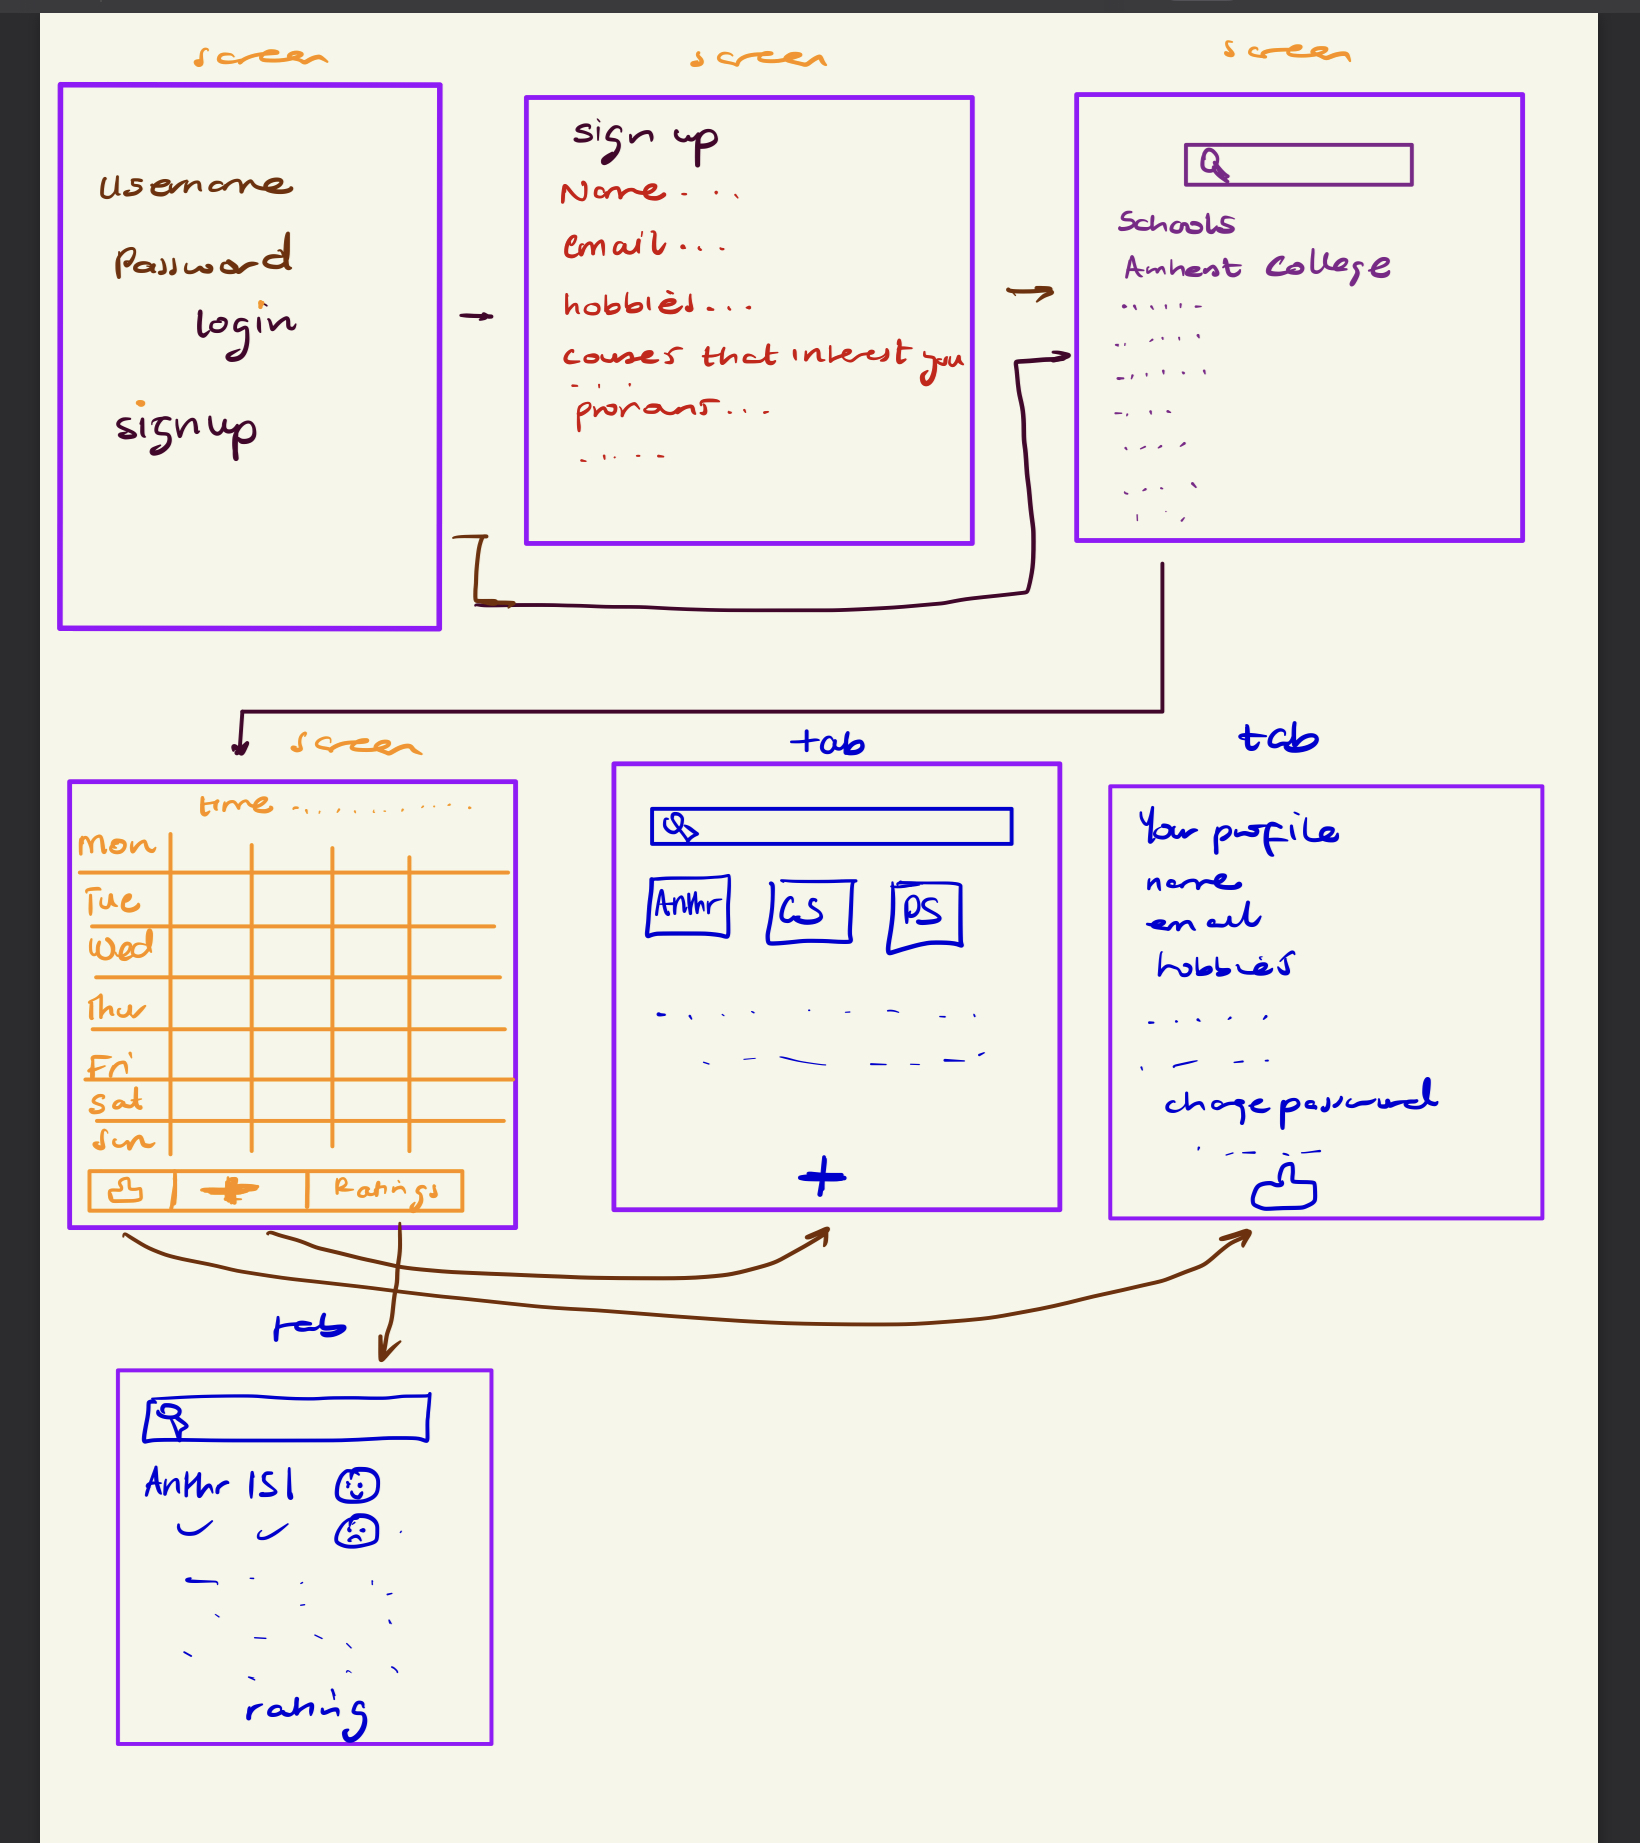 screen
username
Password
login
signup
screen
sign up
Name ...
email ...
hobbies ...
courses that interest you
...
pronouns ...
....
screen
Schools
Amherst College
screen
time ............
Mon
Tue
Wed
Thur
Fri
Sat
Sun
+
Ratings
tab
Anthr CS PS
+
tab
Your profile
name
email
hobbies
change password
tab
Anthr 151
rating